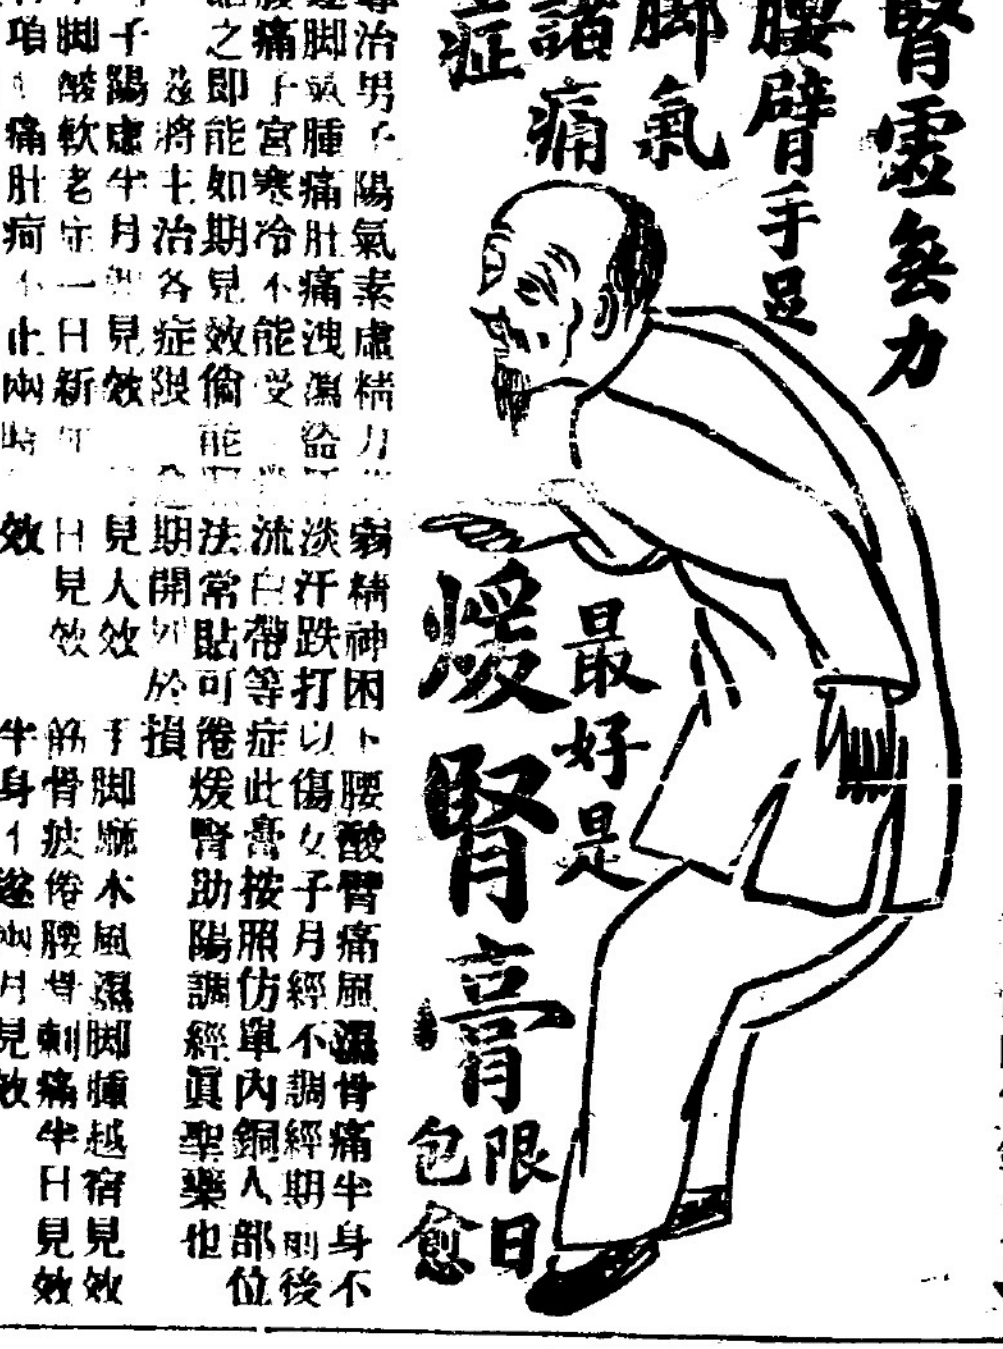 腎虛無力
腰臂手足
脚氣
諸痛
症
最好是
煖腎膏
限日
包愈
治男子陽氣素虛精力
弱精神困
腰酸臂痛風濕骨痛半身不
脚氣腫痛肚痛洩瀉
淡汗跌打以傷女子月經不調經期前後
痛子宮寒冷不能受
流白帶等症此膏按照仿單內銅人部位
之即能如期見效倘能
法常貼可
倦煖腎助陽調經眞聖藥也
茲將主治各症限
期開列於
損
子陽虛半月見效
見人效
手脚麻木風濕脚腫越宿見效
脚酸軟老症一日新
日見效
筋骨疲倦腰骨刺痛半日見效
痛肚疴不止兩時
效
半身不遂兩月見效